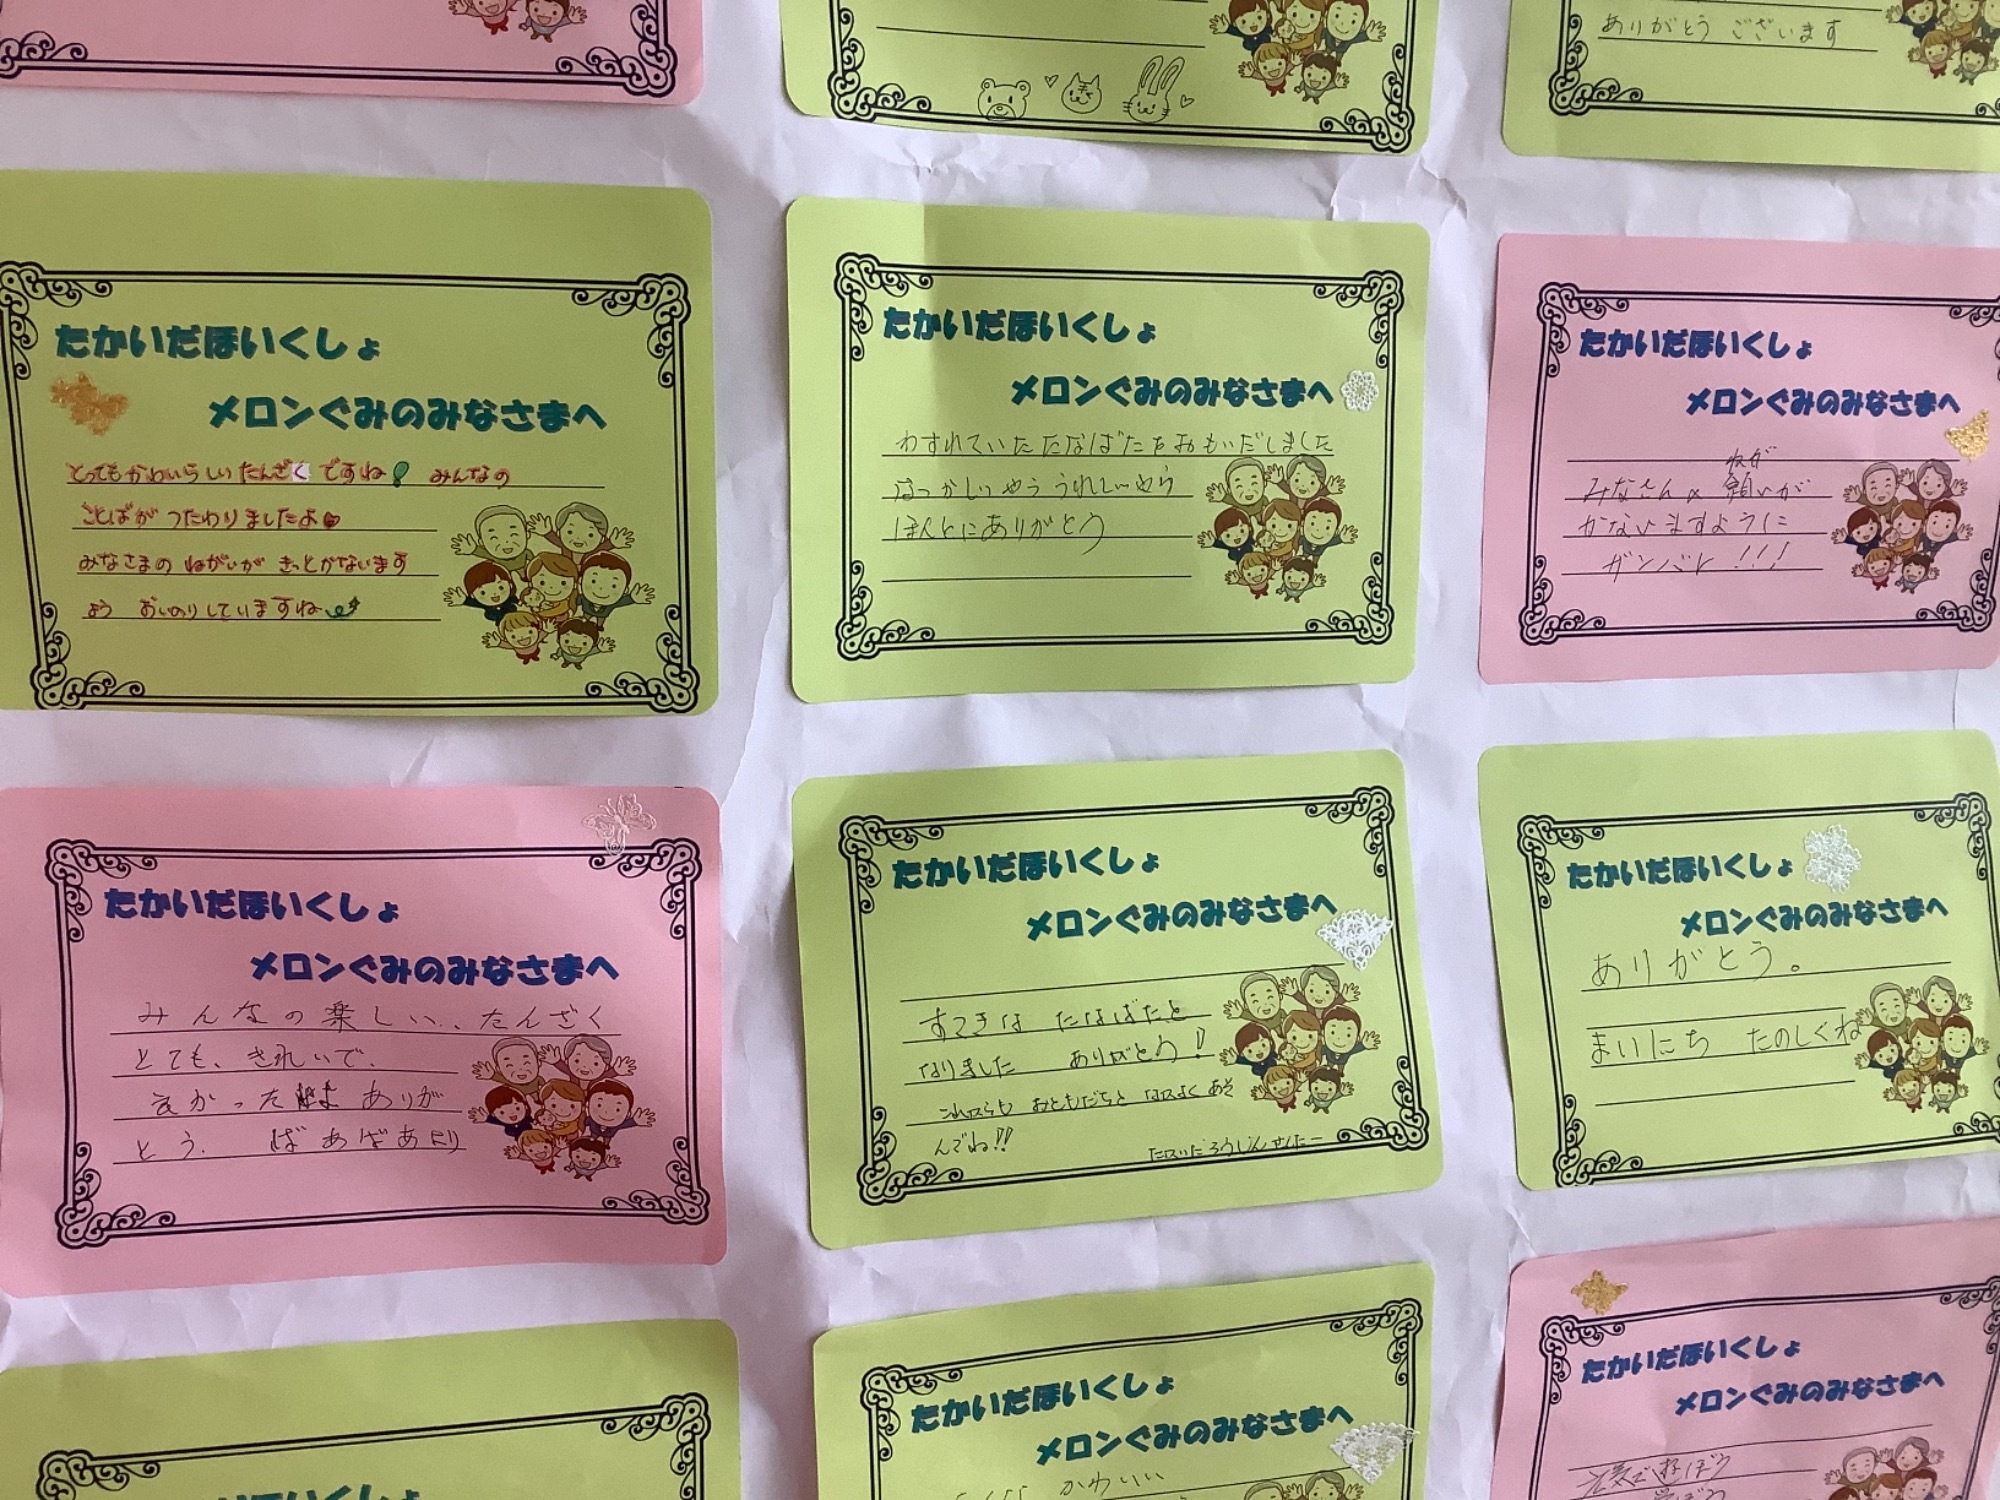 ありがとう ございます
たかいだほいくしょ
メロンぐみのみなさまへ
とってもかわいらしいたんざくですね! みんなの
ことばが つたわりましたよ
みなさまの ねがいが きっとかないます
よう おいのりしていますね
たかいだほいくしょ
メロンぐみのみなさまへ
わすれていた たなばたをおもいだしました
はづかしいやら うれしいやら
ほんとにありがとう
たかいだほいくしょ
メロンぐみのみなさまへ
ねが
みなさんの 願いが
かないますように
ガンバレ!!!
たかいだほいくしょ
メロンぐみのみなさまへ
みんなの楽しい、たんざく
とても、きれいで、
よかったよ ありが
とう、 ばあばあより
たかいだほいくしょ
メロンぐみのみなさまへ
すてきな たなばたと
なりました ありがとう!
これからも おともだちと なかよく あそ
んでね!!
たかいだ ろうじんせんたー
たかいだほいくしょ
メロンぐみのみなさまへ
ありがとう。
まいにち たのしくね
たかいだほいくしょ
メロンぐみのみなさまへ
かわいい
たかいだほいくしょ
メロンぐみのみなさまへ
元気で遊ぼう